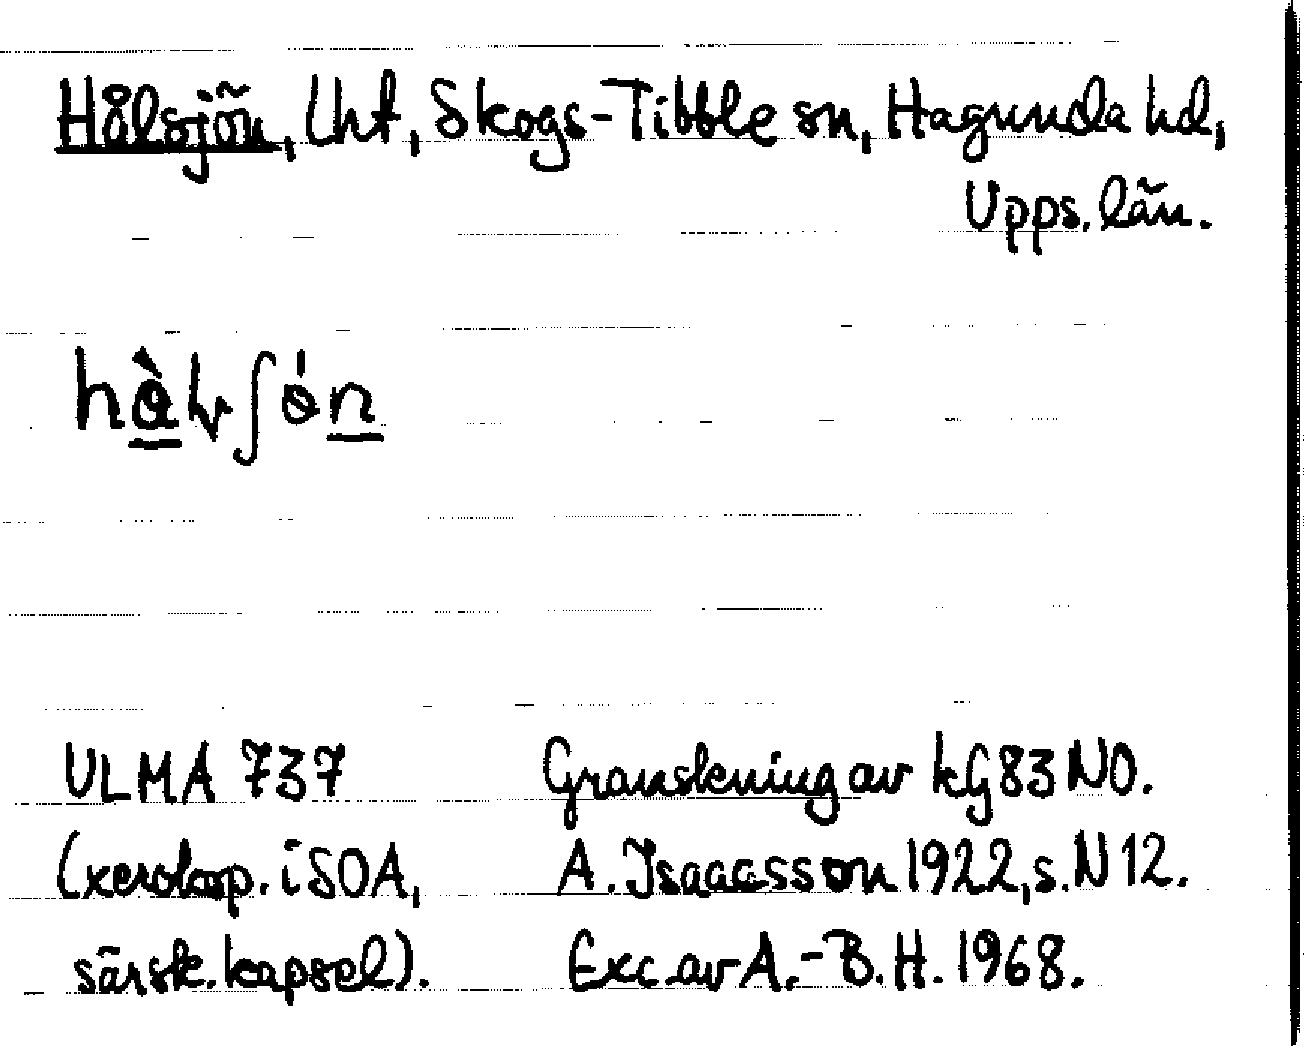 Hålsjön, Lht, Skogs-Tibble sn, Hagunda hd,
Upps. län.
ULMA 737
(xerokop. i SOA,
särsk. kapsel).
Granskning av kG 83 NO.
A. Isaacsson 1922, s. N 12.
Exc. av A.-B. H. 1968.